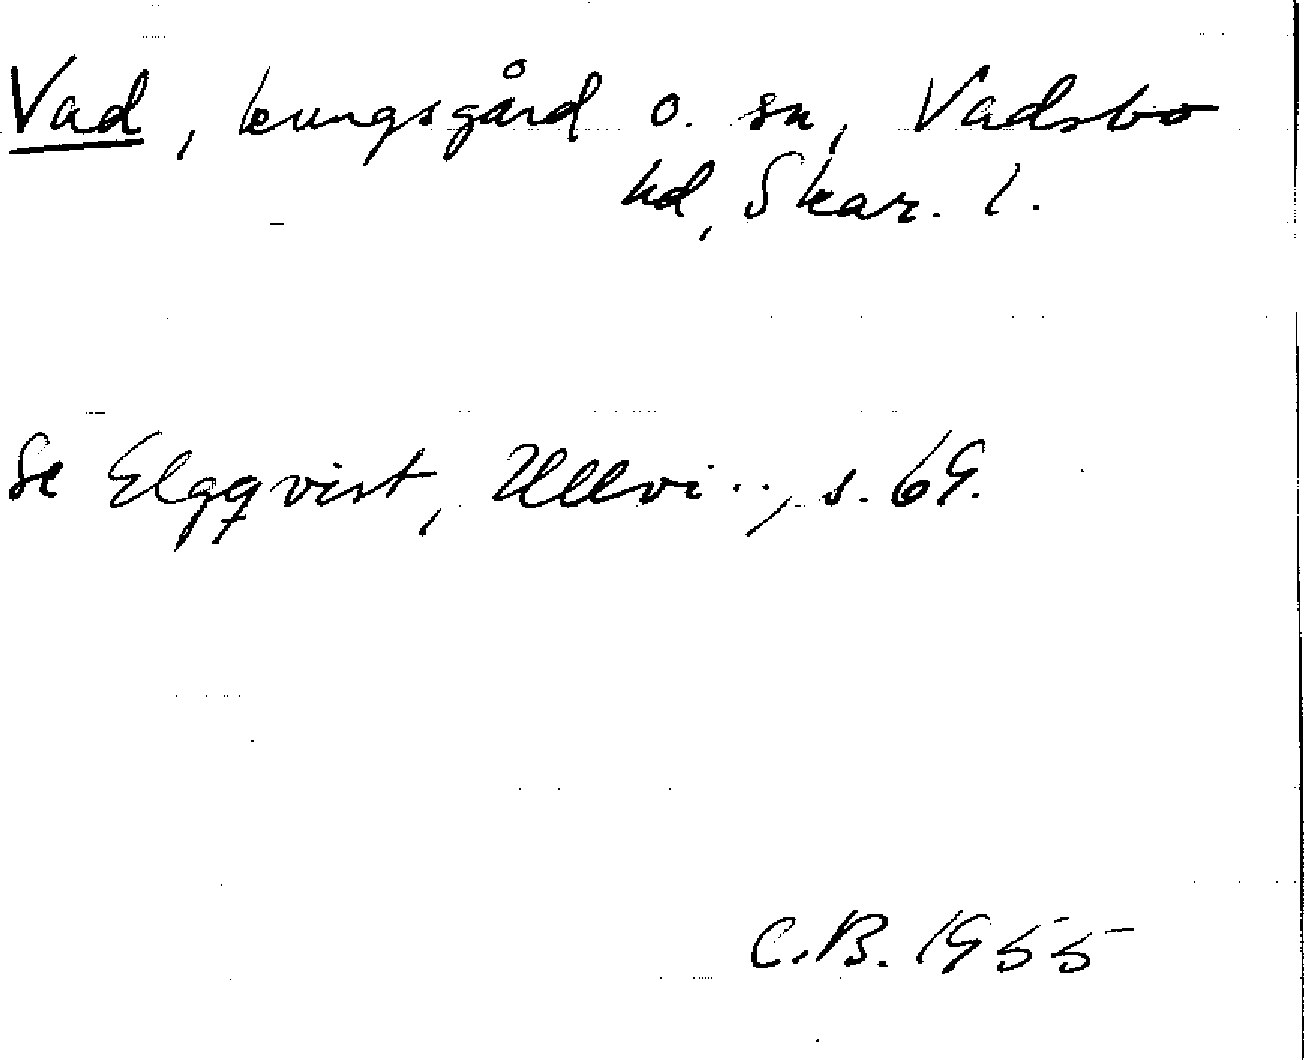 Vad, kungsgård o. sn, Vadsbo
hd, Skar. l.
Se Elgqvist, Ullvi.., s. 69.
C.B. 1955